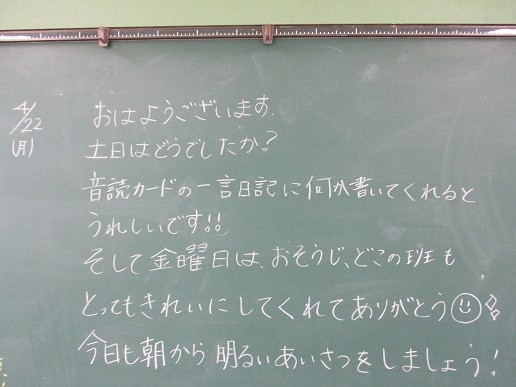 4/22
(月)
おはようございます.
土日はどうでしたか?
音読カードの一言日記に何か書いてくれると
うれしいです!!
そして金曜日は、おそうじ、どこの班も
とってもきれいにしてくれてありがとう
今日も朝から明るいあいさつをしましょう!